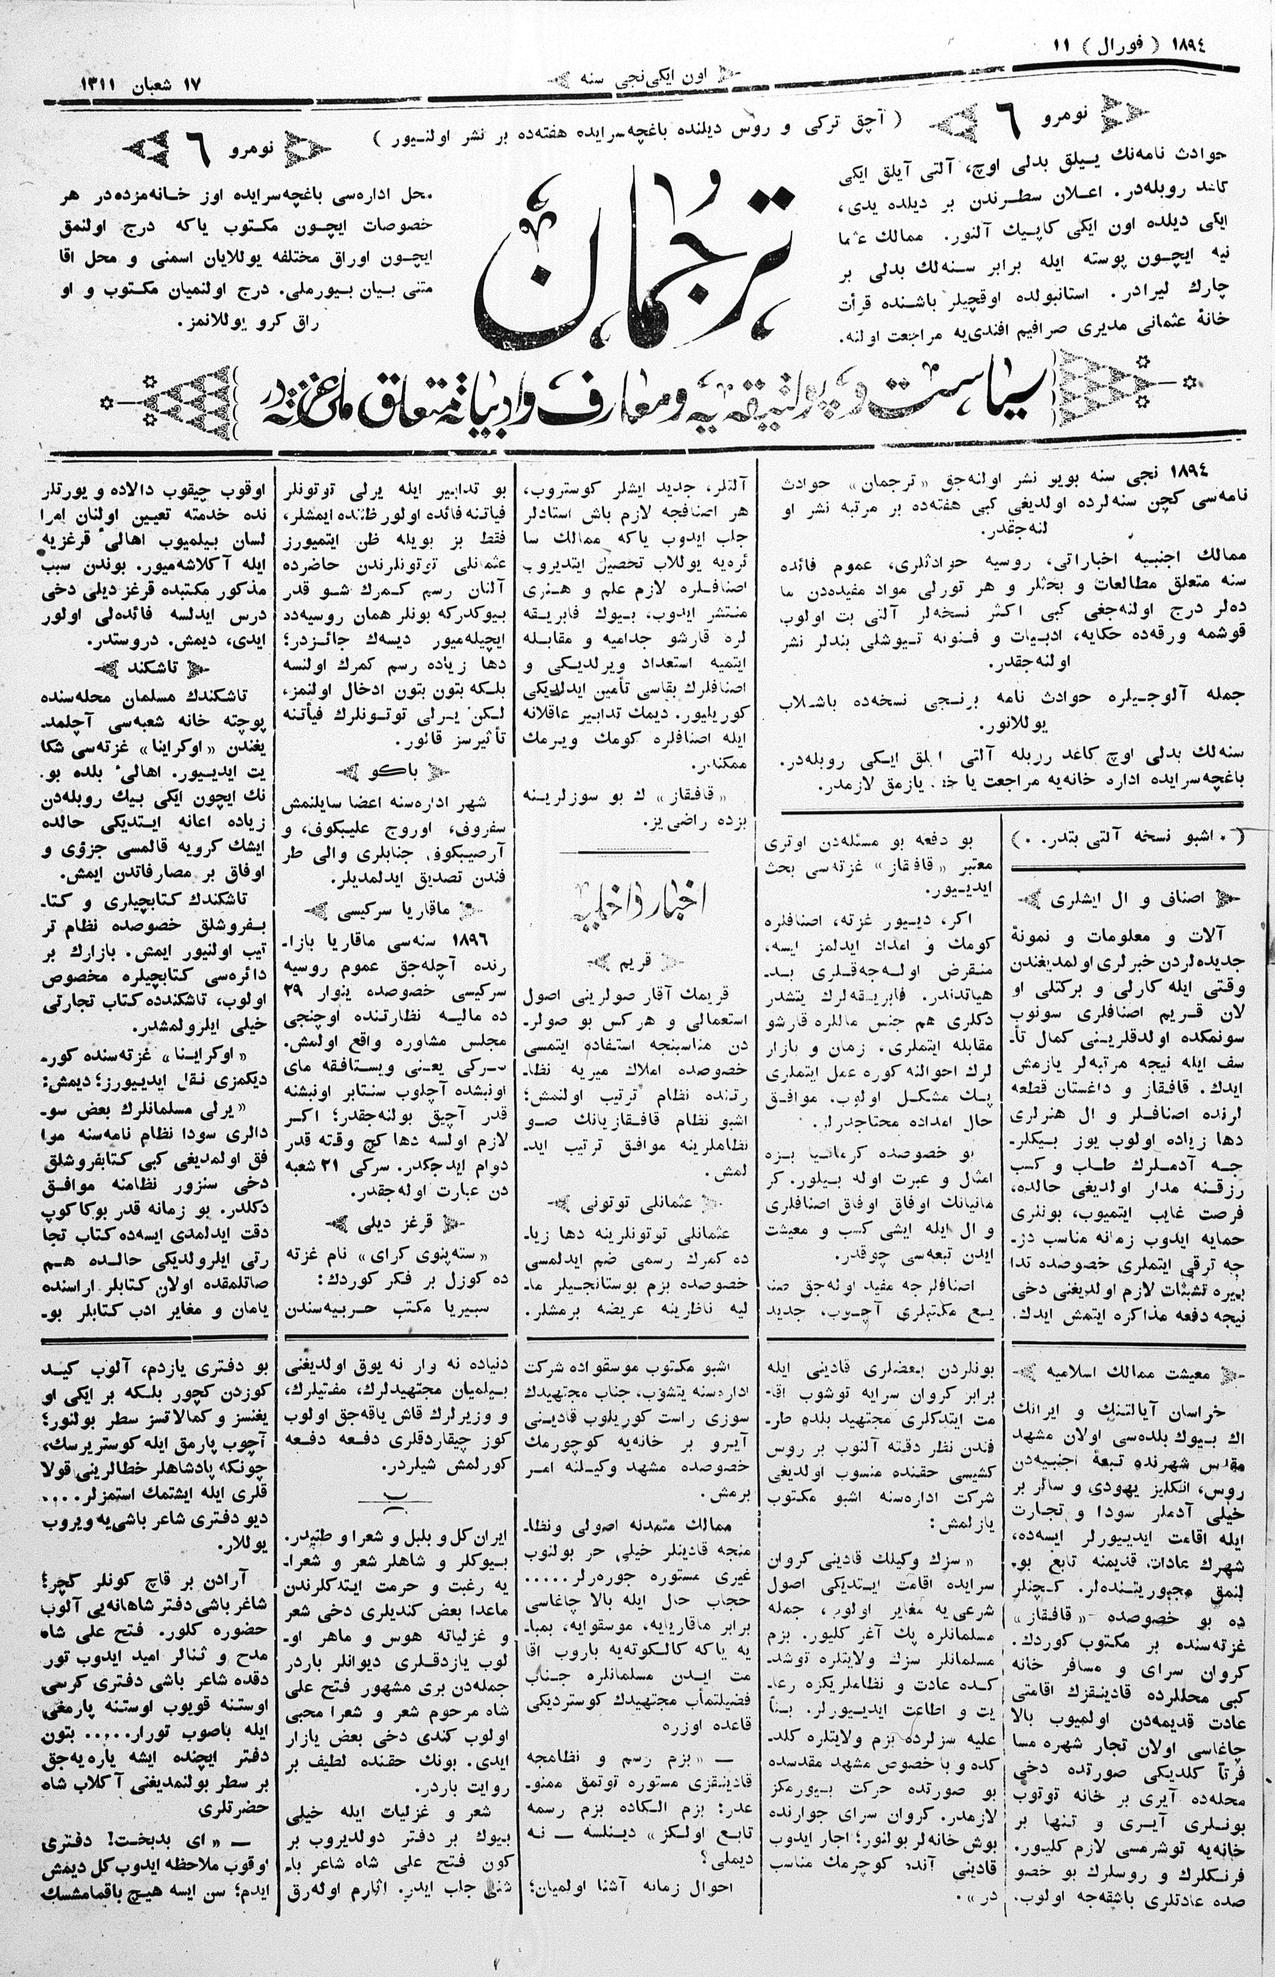 ١٨٩٤ ( فورال ) ١١
اون ایكی نجی سنه
١٧ شعبان ١٣١١
نومرو ٦
( آچق تركی و روس دیلنده باغچه سرایده هفته ده بر نشر اولنـیور )
نومرو ٦
حوادث نامه نك ییلق بدلی اوچ، آلتی آیلق ایكی
كاغد روبله در. اعلان سطرندن بر دیلده یدی،
ایكی دیلده اون ایكی كاپیك آلنور. ممالك عثما
نیه ایچـون پوسته ایله برابر سنه لك بدلی بر
چارك لیرادر. استانبولده اوقچیلر باشنده قرأت
خانهٔ عثمانی مدیری صرافیم افندی یه مراجعت اولنه.
ترجمان
محل اداره سی باغچه سرایده اوز خانه مزده در هر
خصوصات ایچـون مكـتوب یاكه درج اولنمق
ایچـون اوراق مختلفه یوللایان اسمنی و محل اقا
متنی بیان بیورملی. درج اولنمیان مكـتوب و او
راق كرو یوللانمز.
سیاست و پولتیقه یه و معارف و ادبیاته متعلق ملی غزته در
١٨٩٤ نجی سنه بویو نشر اولنه جق «ترجمان» حوادث
نامه سی كچن سنه لرده اولدیغی كبی هفته ده بر مرتبه نشر او
لنه جقدر.
ممالك اجنبیه اخباراتی، روسیه حوادثلری، عموم فائده
سنه متعلق مطالعات و بحثلر و هر تورلی مواد مفیده دن ما
ده لر درج اولنه جغی كبی اكثر نسخه لر آلتی بت اولوب
قوشمه ورقه ده حكایه، ادبیات و فنونه تیوشلی بندلر نشر
اولنه جقدر.
جمله آلوجیلره حوادث نامه برنجی نسخه ده باشلاب
یوللانور.
سنه لك بدلی اوچ كاغد روبله آلتی ایلق ایكی روبله در.
باغچه سرایده اداره خانه یه مراجعت یا خط یازمق لازمدر.
( اشبو نسخه آلتی بتدر. )
اصناف و ال ایشلری
آلات و معلومات و نمونهٔ
جدیده لردن خبرلری اولمدیغندن
وقتی ایله كارلی و بركتلی او
لان قریم اصنافلری سونوب
سونمكده اولدقلرینی كمال تأ
سف ایله نیچه مرتبه لر یازمش
ایدك. قافقاز و داغستان قطعه
لرنده اصنافلر و ال هنرلری
دها زیاده اولوب یوز بیكلر
جه آدملرك طلب و كسب
رزقنه مدار اولدیغی حالده،
فرصت غایب ایتمیوب، بونلری
حمایه ایدوب زمانه مناسب در
جه ترقی ایتملری خصوصده تدا
بیره تشبثات لازم اولدیغنی دخی
نیجه دفعه مذاكره ایتمش ایدك.
بو دفعه بو مسئله دن اوتری
معتبر «قافقاز» غزته سی بحث
ایدیـیور.
اكر، دیـیور غزته، اصنافلره
كومك و امداد ایدلمز ایسه،
منقرض اوله جه قلری بد
هیاتدندر. فابریقه لرك یتشدر
دكلری هم جنس ماللره قارشو
مقابله ایتملری. زمان و بازار
لرك احوالنه كوره عمل ایتملری
پك مشكل اولوب. موافق
حال امداده محتاجدرلر.
بو خصوصده كرمانیا بزه
امثال و عبرت اوله بیلور. كر
مانیانك اوفاق اوفاق اصنافلری
و ال ایله ایشی كسب و معیشت
ایدن تبعه سی چوقدر.
اصنافلرجه مفید اوله جق صنا
یع مكتبلری آچوب، جدید
آلتلر، جدید ایشلر كوستروب،
هر اصنافجه لازم باش استادلر
جلب ایدوب یاكه ممالك سا
ئره یه یوللاب تخصیل ایتدیروب
اصنافلره لازم علم و هنری
منتشر ایدوب، بیوك فابریقه
لره قارشو جدامیه و مقابله
ایتمیه استعداد ویرلدیكی و
اصنافلرك بقاسی تأمین ایدلدیكی
كوریلیور. دیمك تدابیر عاقلانه
ایله اصنافلره كومك ویرمك
ممكندر.
«قافقاز» ك بو سوزلرینه
بزده راضی یز.
اخبار داخلیه
قریم
قریمك آقار صولرینی اصول
استعمالی و هركس بو صولر
دن مناسبنجه استفاده ایتمسی
خصوصده املاك میریه نظا
رتنده نظام ترتیب اولنمش؛
اشبو نظام قافقازیانك صو
نظاملرینه موافق ترتیب اید
لمش.
عثمانلی توتونی
عثمانلی توتونلرینه دها زیا
ده كمرك رسمی ضم ایدلمسی
خصوصده بزم بوستانجیلر ما
لیه ناظرینه عریضه برمشلر.
بو تدابیر ایله یرلی توتونلر
فیاتنه فائده اولور ظننده ایمشلر،
فقط بز بویله ظن ایتمیورز
عثمانلی توتونلرندن حاضرده
آلنان رسم كمرك شو قدر
بیوكدركه بونلر همان روسیه ده
ایچیله میور دیسه ك جائزدر؛
دها زیاده رسم كمرك اولنسه
بلكه بتون بتون ادخال اولنمز،
لكن یرلی توتونلرك فیأتنه
تأثیرسز قالور.
باكو
شهر اداره سنه اعضا سایلنمش
سفروف، اوروج علیبكوف، و
آرصیبكوف جنابلری والی طر
فندن تصدیق ایدلمدیلر.
ماقاریا سركیسی
١٨٩٦ سنه سی ماقاریا بازا
رنده آچله جق عموم روسیه
سركیسی خصوصده ینوار ٢٩
ده مالیه نظارتنده اوچنجی
مجلس مشاوره واقع اولمش.
سركی یعنی ویستافقه مای
اونبشده آچلوب سنتابر اونبشنه
قدر آچیق بولنه جقدر؛ اكر
لازم اولسه دها كچ وقته قدر
دوام ایدجكدر. سركی ٢١ شعبه
دن عبارت اوله جقدر.
قرغز دیلی
«سته پنوی كرای» نام غزته
ده كوزل بر فكر كوردك:
سیبیریا مكتب حربیه سندن
اوقوب چیقوب دالاده و یورتلر
نده خدمته تعیین اولنان امرا
لسان بیلمیوب اهالیٔ قرغزیه
ایله آكلاشه میور. بوندن سبب
مذكور مكتبده قرغز دیلی دخی
درس ایدلسه فائده لی اولور
ایدی، دیمش. دروستدر.
تاشكند
تاشكندك مسلمان محله سنده
پوچته خانه شعبه سی آچلمد
یغندن «اوكراینا» غزته سی شكا
یت ایدییور. اهالیٔ بلده بو
نك ایچون ایكی بیك روبله دن
زیاده اعانه ایتدیكی حالده
ایشك كرویه قالمسی جزؤی و
اوفاق بر مصارفاتدن ایمش.
تاشكندك كتابچیلری و كتا
بفروشلق خصوصده نظام تر
تیب اولنیور ایمش. بازارك بر
دائره سی كتابچیلره مخصوص
اولوب، تاشكندده كتاب تجارتی
خیلی ایلرولمشدر.
«اوكراینا» غزته سنده كور
دیكمزی نقل ایدییورز؛ دیمش:
«یرلی مسلمانلرك بعض سو
دالری سودا نظام نامه سنه موا
فق اولمدیغی كبی كتابفروشلق
دخی سنزور نظامنه موافق
دكلدر. بو زمانه قدر بوكا كوپ
دقت ایدلمدی ایسه ده كتاب تجا
رتی ایلرولدیكی حالده هم
صاتلمقده اولان كتابلر اراسنده
یامان و مغایر ادب كتابلر بو
معیشت ممالك اسلامیه
خراسان آیالتنك و ایرانك
اك بیوك بلده سی اولان مشهد
مقدس شهرنده تبعهٔ اجنبیه دن
روس، انكلیز یهودی و سائر بر
خیلی آدملر سودا و تجارت
ایله اقامت ایدییورلر ایسه ده،
شهرك عادات قدیمنه تابع بو
لنمق مجبوریتنده لر. كچنلر
ده بو خصوصده «قافقاز»
غزته سنده بر مكتوب كوردك.
كروان سرای و مسافر خانه
كبی محللرده قادینقزك اقامتی
عادت قدیمه دن اولمیوب بالا
چاغاسی اولان تجار شهره مسا
فرتأ كلدیكی صورتده دخی
محله ده آیری بر خانه توتوب
بونلری آیری و تنها بر
خانه یه توشرمسی لازم كلیور.
فرنكلرك و روسلرك بو خصو
صده عادتلری باشقه جه اولوب.
بونلردن بعضلری قادینی ایله
برابر كروان سرایه توشوب اقا
مت ایتدكلری مجتهید بلده طر
فندن نظر دقته آلنوب بر روس
كشیسی حقنده منسوب اولدیغی
شركت اداره سنه اشبو مكتوب
یازلمش:
«سزك وكیلك قادینی كروان
سرایده اقامت ایتدیكی اصول
شرعی یه مغایر اولوب، جمله
مسلمانلره پك آغر كلیور. بزم
مسلمانلر سزك ولایتلره توشد
كده عادت و نظاملریكزه رعا
یت و اطاعت ایدییورلر. بنأ
علیه سزلرده بزم ولایتلره كلد
كده و با خصوص مشهد مقدسده
بو صورتده حركت بیورمكز
لازمدر. كروان سرای جوارنده
بوش خانه لر بولنور؛ اجار ایدوب
قادینی آنده كوچرمك مناسب
در».
اشبو مكتوب موسقواده شركت
اداره سنه یتشوب، جناب مجتهیدك
سوزی راست كوریلوب قادینی
آیرو بر خانه یه كوچورمك
خصوصده مشهد وكیلنه امر
برمش.
ممالك متمدنه اصولی ونظا
منجه قادینلر خیلی حر بولنوب
غیری مستوره جوره رلر.....
حجاب حال ایله بالا چاغاسی
برابر ماقاریایه، موسقوایه، بمبا
یه یاكه كالكوته یه باروب اقا
مت ایدن مسلمانلره جناب
فضیلتمأب مجتهیدك كوستردیكی
قاعده اوزره
— «بزم رسم و نظامجه
قادینقزی مستوره توتمق ممنو
عدر: بزم الكاده بزم رسمه
تابع اولكز» دینلسه — نه
دیملی؟
احوال زمانه آشنا اولمیان؛
دنیاده نه وار نه یوق اولدیغنی
بیلمیان مجتهیدلرك، مفتیلرك،
و وزیرلرك قاش یاقه جق اولوب
كوز چیقاردقلری دفعه دفعه
كورلمش شیلردر.
ایران كل و بلبل و شعرا و طتیدر.
بیوكلر و شاهلر شعر و شعرا
یه رغبت و حرمت ایتدكلرندن
ماعدا بعض كندیلری دخی شعر
و غزلیاته هوس و ماهر او
لوب یازدقلری دیوانلر باردر
جمله دن بری مشهور فتح علی
شاه مرحوم شعر و شعرا محبی
اولوب كندی دخی بعض یازار
ایدی. بونك حقنده لطیف بر
روایت باردر.
شعر و غزلیات ایله خیلی
بیوك بر دفتر دولدیروب بر
كون فتح علی شاه شاعر با
شنی جلب ایدر. اثارم اوله رق
بو دفتری یازدم، آلوب كید
كوزدن كچور بلكه بر ایكی او
یغنسز و كمالاتسز سطر بولنور؛
آچوب پارمق ایله كوستریرسك،
چونكه پادشاهلر خطالرینی قولا
قلری ایله ایشتمك استمزلر....
دیو دفتری شاعر باشی یه ویروب
یوللار.
آرادن بر قاچ كونلر كچر؛
شاعر باشی دفتر شاهانه یی آلوب
حضوره كلور. فتح علی شاه
مدح و ثنالر امید ایدوب تور
دقده شاعر باشی دفتری كرسی
اوستنه قویوب اوستنه پارمغی
ایله باصوب تورار..... بتون
دفتر ایچنده ایشه یاره یه جق
بر سطر بولنمدیغنی آكلاب شاه
حضرتلری
— «ای بدبخت! دفتری
اوقوب ملاحظه ایدوب كل دیمش
ایدم؛ سن ایسه هیچ باقمامشسك